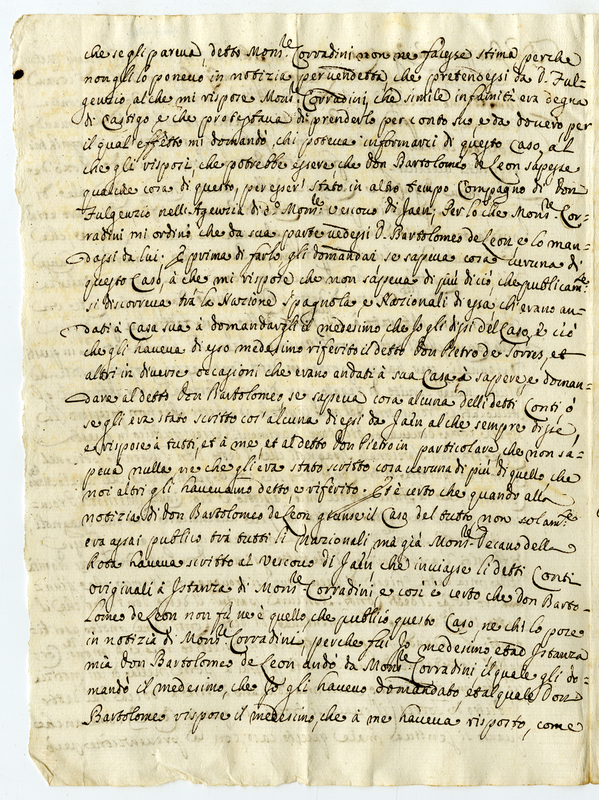 che se gli pareva, detto Mons.re Corradini non ne facesse stima perche
non gli lo ponevo in notizia per vendetta che pretendessi da D. Ful-
genzio al che mi rispose Mons.re Corradini, che simile infamità era degna
di Castigo e che protestava di prenderlo per conto suo e da dovero per
il qual'effetto mi domandò, chi poteva informarci di questo Caso, al
che gli risposi, che potrebbe essere che Don Bartolomeo de Leon sapesse
qualche cosa di questo, per esser' stato in altro tempo Compagno di Don
Fulgenzio nell'Agenzia di d.o Mons.re Vescovo di Jaen; Per lo che Mons.re Cor-
radini mi ordinò che da sua parte vedessi D. Bartolomeo de Leon e lo man-
dassi da lui. E prima di farlo gli domandai se sapeva cosa veruna di
questo Caso, à che mi rispose che non sapeva di più di ciò, che publicam.te
si discorreva trà la Nazione Spagnola, e Nazionali di essa ch'erano an-
dati à Casa sua à domandargli il medesimo che Jo gli dissi del Caso, e ciò
che gli haveva di esso medesimo riferito il detto Don Pietro de Torres, et
altri in diverse occasioni che erano andati à sua Casa à sapere, e doman-
dare al detto Don Bartolomeo se sapeva cosa alcuna delli detti Conti ò
se gli era stato scritto cos'alcuna di essi da Jaèn, al che sempre disse,
e rispose à tutti, et à me et al detto Don Pietro in particolare, che non sa-
peva nulla ne che gli era stato scritto cosa veruna di più di quello che
noi altri gli havevamo detto e riferito. Et è certo che quando alla
notizia di Don Bartolomeo de Leon giunse il Caso del tutto, non solam.te
era assai publico trà tutti li Nazionali, mà già Mons.re Decano della
Rota haveva scritto al Vescovo di Jaèn che inviasse li detti Conti
originali à Istanza di Mons.re Corradini e così è certo che Don Barto-
lomeo de Leon non fù, ne è quello che publicò questo Caso, ne chi lo pose
in notizia di Mons.re Corradini, perche fui Jo medesimo et ad Istanza
mia Don Bartolomeo de Leon andò da Mons.re Corradini il quale gli do-
mandò il medesimo, che Jo gli havevo domandato, et al quale Don
Bartolomeo rispose il medesimo, che à me haveva risposto, come